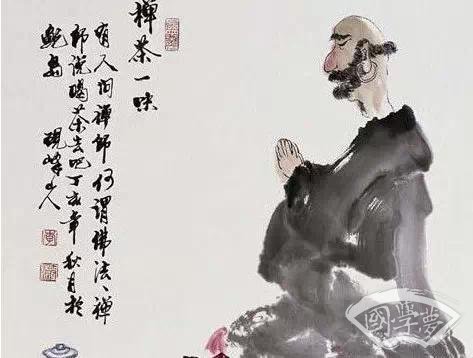 禪茶一味
有人问禪师何谓佛法、禪
师说喝茶去吧丁亥年秋月於
鮀岛 砚峰山人
國學夢